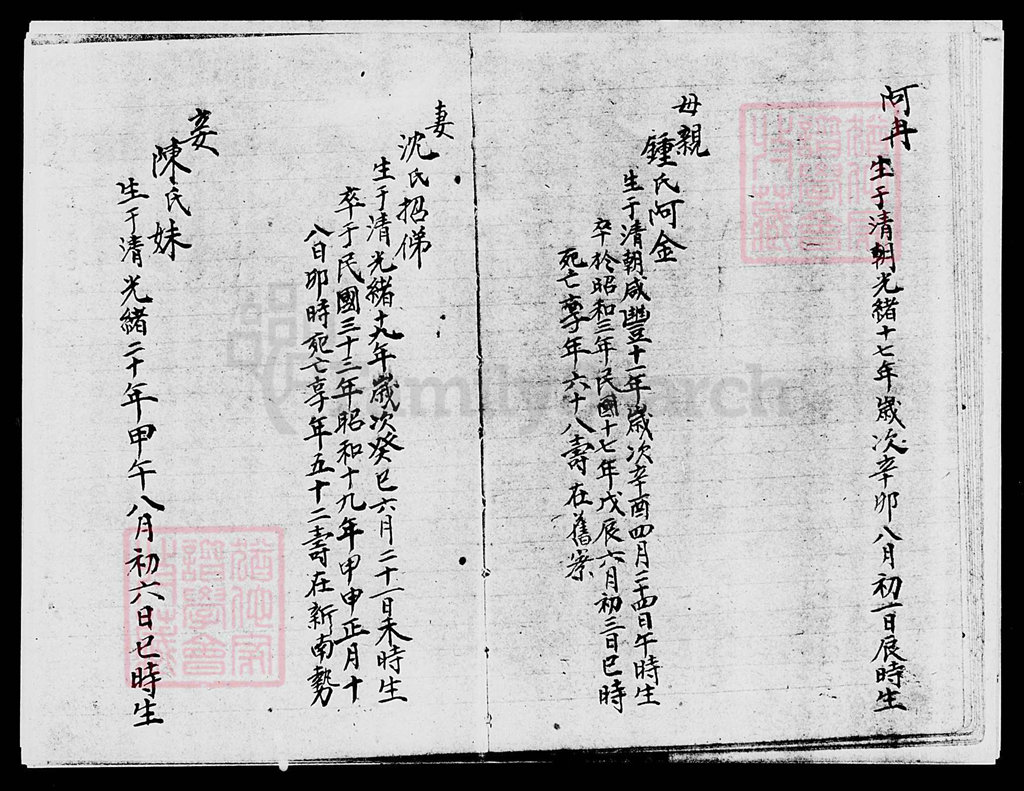 阿冉
生于清朝光緒十七年歲次辛卯八月初一日辰時生
母親
鍾氏阿金
生于清朝咸豐十一年歲次辛酉四月二十四日午時生
卒於昭和三年民國十七年戊辰六月初三日巳時
死亡享年六十八壽在舊寮
妻
沈氏招俤
生于清光緒十九年歲次癸巳六月二十一日未時生
卒于民國三十三年昭和十九年甲申正月十
八日卯時死亡享年五十二壽在新南勢
妾
陳氏妹
生于清光緒二十年甲午八月初六日巳時生
FamilySearch